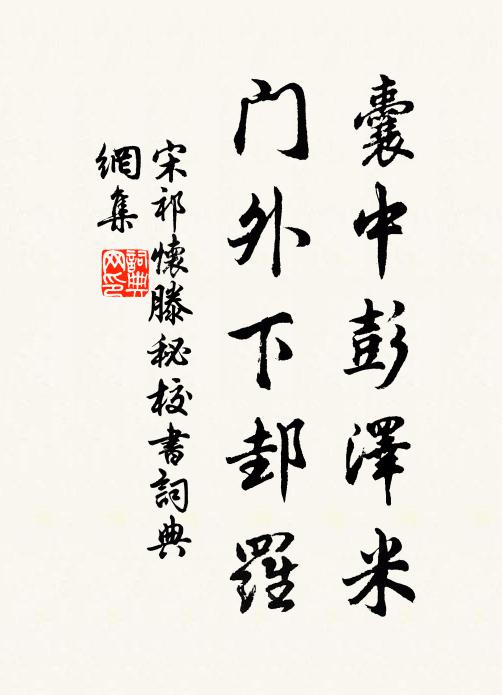 囊中彭澤米
門外下邽羅
宋祁懷滕秘校書詞典
網集
詞典
网印